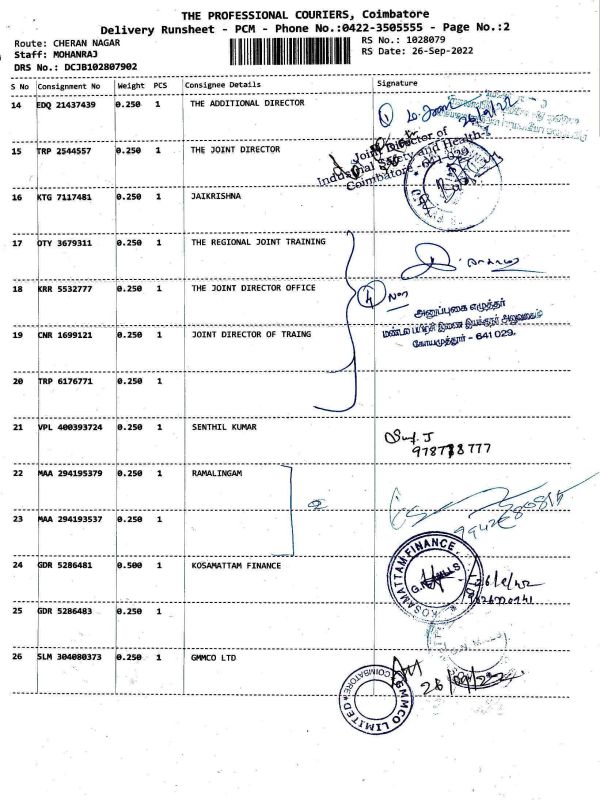 THE PROFESSIONAL COURIERS, Coimbatore
Delivery Runsheet - PCM - Phone No.:0422-3505555 - Page No.:2
Route: CHERAN NAGAR
RS No.: 1028079
Staff: MOHANRAJ
RS Date: 26-Sep-2022
DRS No.: DCJB102807902
S No Consignment No Weight PCS Consignee Details Signature
14 EDQ 21437439 0.250 1 THE ADDITIONAL DIRECTOR
15 TRP 2544557 0.250 1 THE JOINT DIRECTOR
Joint Director of
Industrial Safety and Health-I
Coimbatore - 641 029
16 KTG 7117481 0.250 1 JAIKRISHNA
17 OTY 3679311 0.250 1 THE REGIONAL JOINT TRAINING
18 KRR 5532777 0.250 1 THE JOINT DIRECTOR OFFICE
அனுப்புகை எழுத்தர்
மண்டல பயிற்சி இணை இயக்குநர் அலுவலகம்
கோயமுத்தூர் - 641 029.
19 CNR 1699121 0.250 1 JOINT DIRECTOR OF TRAING
20 TRP 6176771 0.250 1
21 VPL 400393724 0.250 1 SENTHIL KUMAR
22 MAA 294195379 0.250 1 RAMALINGAM
23 MAA 294193537 0.250 1
24 GDR 5286481 0.500 1 KOSAMATTAM FINANCE
KOSAMATTAM FINANCE
25 GDR 5286483 0.250 1
26 SLM 304080373 0.250 1 GMMCO LTD
GMMCO LIMITED
COIMBATORE